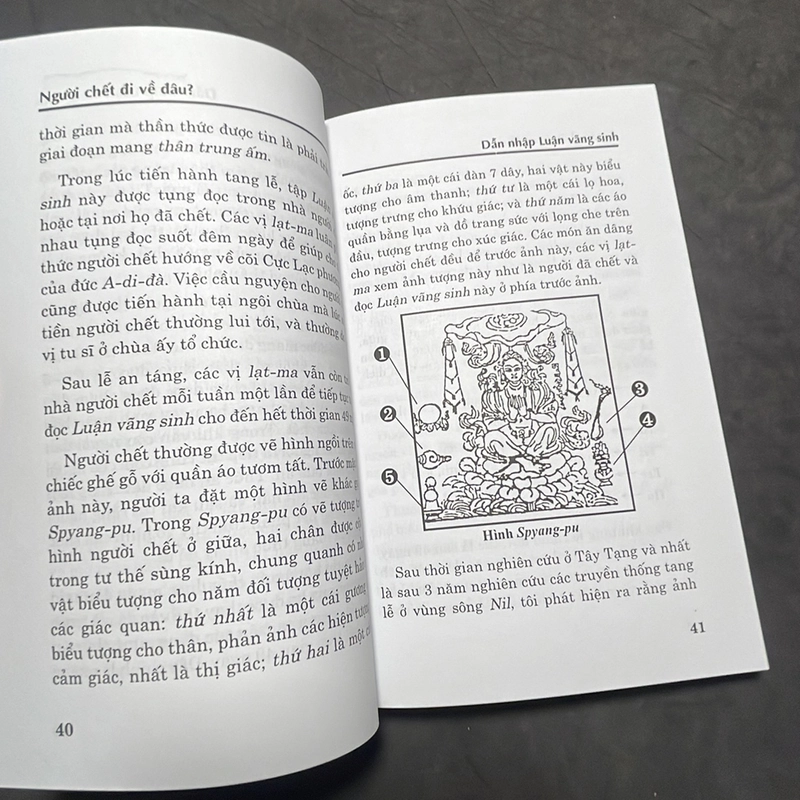 Người chết đi về đâu?
thời gian mà thần thức được tin là phải
giai đoạn mang thân trung ấm.
Trong lúc tiến hành tang lễ, tập Luận
sinh này được tụng đọc trong nhà người
hoặc tại nơi họ đã chết. Các vị lạt-ma luân
nhau tụng đọc suốt đêm ngày để giúp cho
thức người chết hướng về cõi Cực Lạc phương
của đức A-di-đà. Việc cầu nguyện cho người
cũng được tiến hành tại ngôi chùa mà lúc
tiền người chết thường lui tới, và thường
vị tu sĩ ở chùa ấy tổ chức.
Sau lễ an táng, các vị lạt-ma vẫn còn
nhà người chết mỗi tuần một lần để tiếp tục
đọc Luận vãng sinh cho đến hết thời gian 49
Người chết thường được vẽ hình ngồi trên
chiếc ghế gỗ với quần áo tươm tất. Trước
ảnh này, người ta đặt một hình vẽ khác
Spyang-pu. Trong Spyang-pu có vẽ tượng
hình người chết ở giữa, hai chân được
trong tư thế sùng kính, chung quanh có
vật biểu tượng cho năm đối tượng tuyệt
các giác quan: thứ nhất là một cái gương
biểu tượng cho thân, phản ảnh các hiện tượng
cảm giác, nhất là thị giác; thứ hai là một
40
Dẫn nhập Luận vãng sinh
ốc, thứ ba là một cái đàn 7 dây, hai vật này biểu
tượng cho âm thanh; thứ tư là một cái lọ hoa,
tượng trưng cho khứu giác; và thứ năm là các áo
quần bằng lụa và đồ trang sức với lọng che trên
đầu, tượng trưng cho xúc giác. Các món ăn dâng
cho người chết đều để trước ảnh này, các vị lạt-
ma xem ảnh tượng này như là người đã chết và
đọc Luận vãng sinh này ở phía trước ảnh.
1
2
3
4
5
Hình Spyang-pu
Sau thời gian nghiên cứu ở Tây Tạng và nhất
là sau 3 năm nghiên cứu các truyền thống tang
lễ ở vùng sông Nil, tôi phát hiện ra rằng ảnh
41